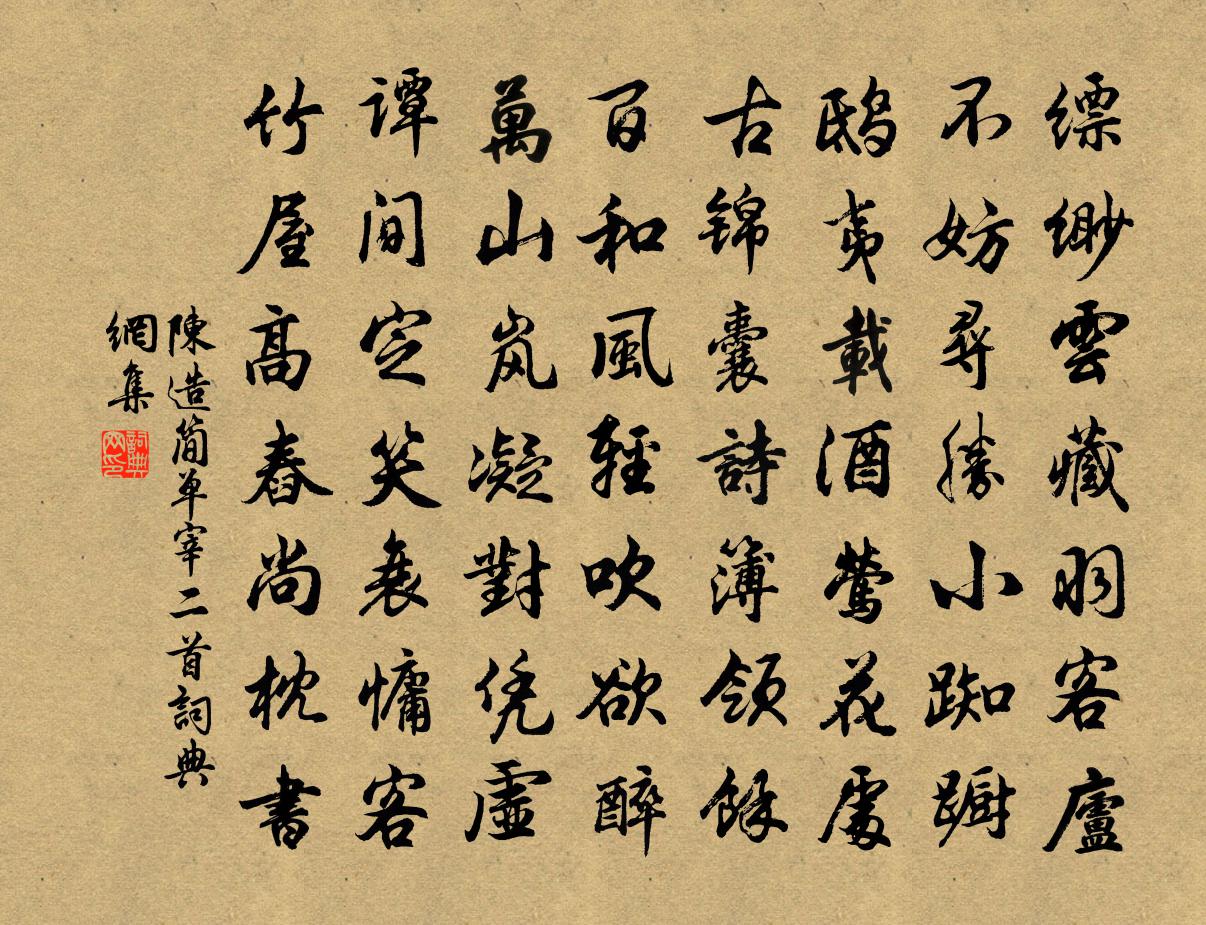 缥緲雲藏羽客廬
不妨尋勝小踟蹰
鴟夷載酒鶯花處
古錦囊詩簿領餘
百和風輕吹欲醉
萬山岚凝對凭虛
譚間定笑衰慵客
竹屋高舂尚枕書
陳造簡單宰二首詞典
網集
詞典
网印